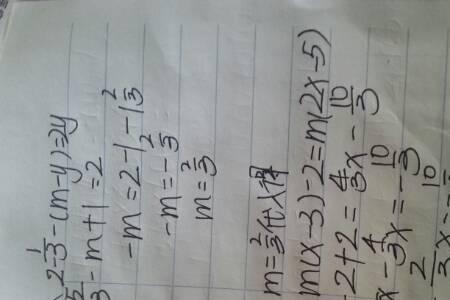 2-\frac{1}{3}-(m-y)=2y
\frac{2}{3}-m+1=2
-m=2-1-1\frac{2}{3}
-m=-\frac{2}{3}
m=\frac{2}{3}
m=\frac{2}{3}代入得
m(x-3)-2=m(2x-5)
2+2=\frac{4}{3}x-\frac{10}{3}
x-\frac{4}{3}x=-\frac{10}{3}